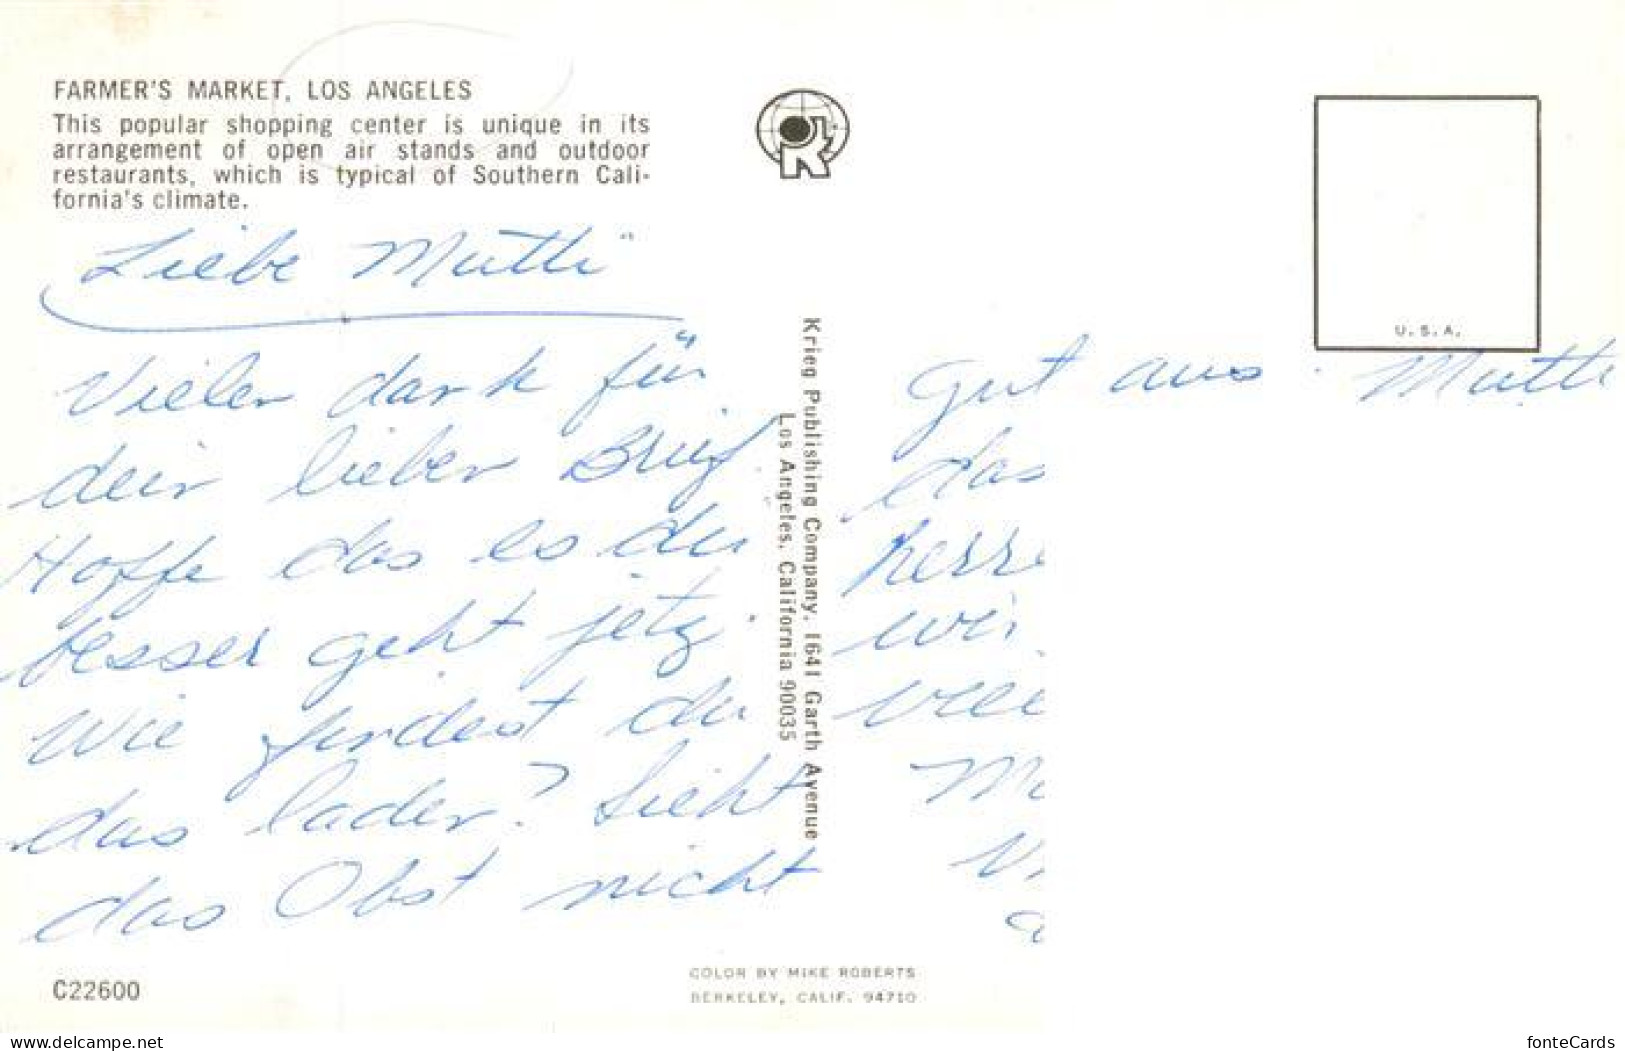 FARMER'S MARKET, LOS ANGELES
This popular shopping center is unique in its
arrangement of open air stands and outdoor
restaurants, which is typical of Southern Cali-
fornia's climate.
Liebe Mutti"
Vielen dank für
dein lieben Brief.
Hoffe das es du
besser geht jetz.
Wie findest du
das laden? Sieht
das Obst nicht
Krieg Publishing Company, 1641 Garth Avenue
Los Angeles, California 90035
U.S.A.
gut aus. Mutti
das
herr
wir
M
C22600
COLOR BY MIKE ROBERTS
BERKELEY, CALIF. 94710
www.delcampe.net
fonteCards